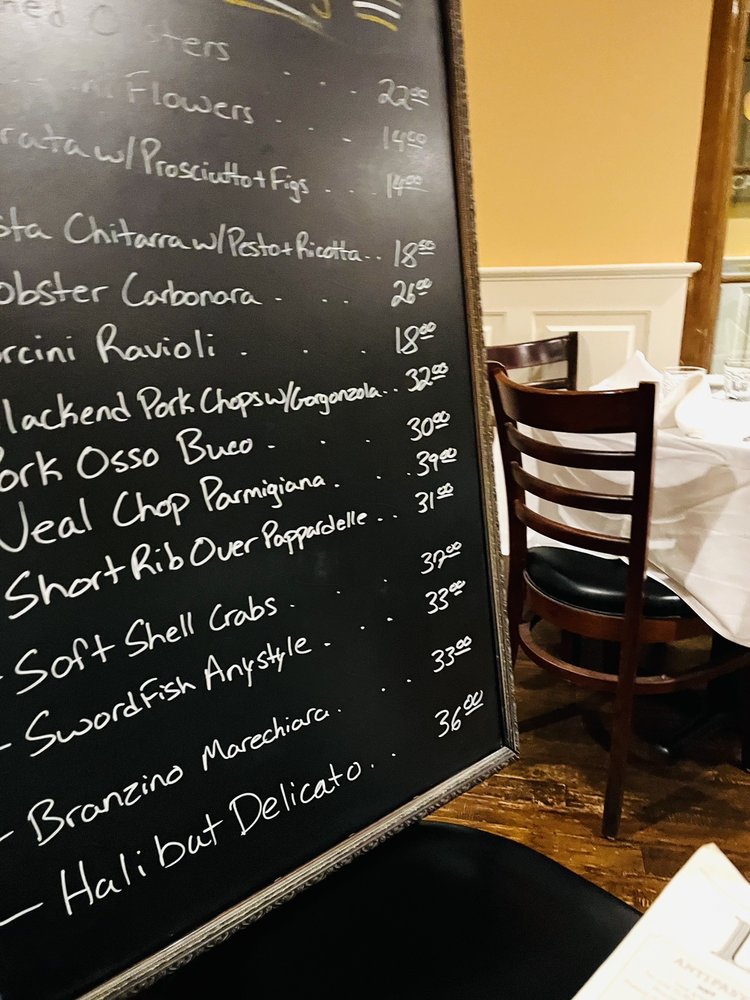 ned Oysters . . . 22.00
ni Flowers . . - 14.00
rata w/ Prosciutto + Figs . . . 14.00
sta Chitarra w/ Pesto + Ricotta . . 18.00
obster Carbonara . . . 26.00
rcini Ravioli . . . 18.00
lackend Pork Chops w/ Gorgonzola . . 32.00
Pork Osso Buco . . . 30.00
Veal Chop Parmigiana . . . 39.00
Short Rib Over Pappardelle . . 31.00
- Soft Shell Crabs . . .
- Swordfish Anystyle . . . 33.00
- Branzino Marechiara . . . 33.00
- Halibut Delicato . . 36.00
ANTIPAS